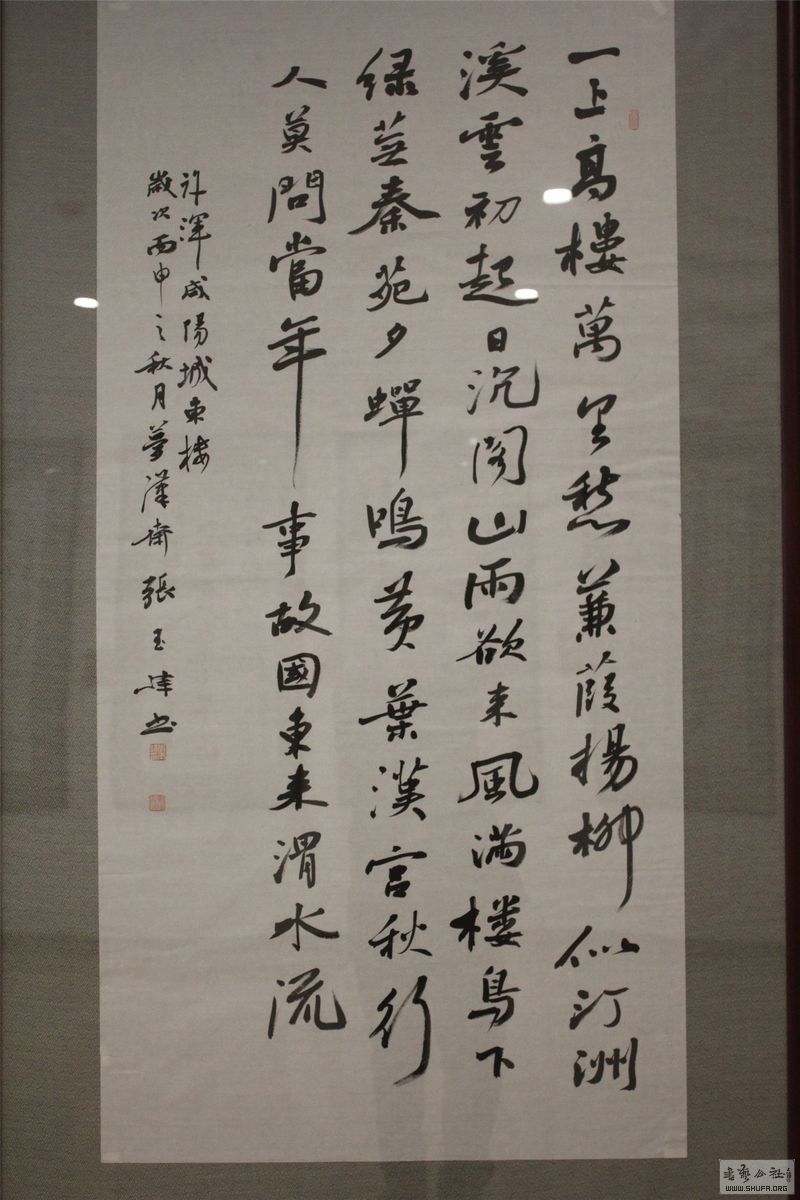 一上高樓萬里愁蒹葭楊柳似汀洲
溪雲初起日沉閣山雨欲来風满楼鳥下
绿芜秦苑夕蟬鳴黄葉漢宫秋行
人莫問當年事故國東来渭水流
许渾咸陽城東楼
歲次丙申之秋月夢漢齋張玉
書藝公社
WWW.SHUFA.ORG